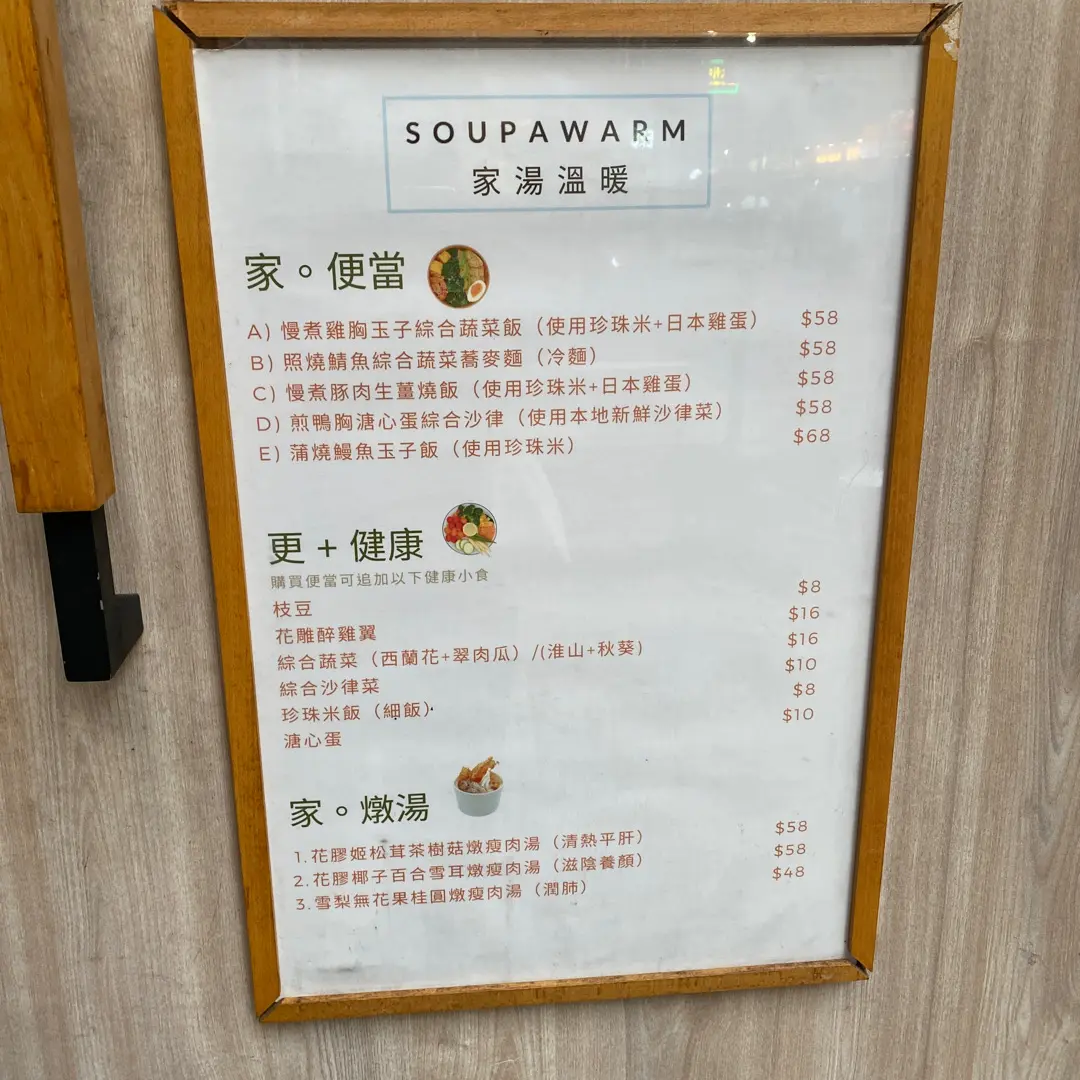 SOUPAWARM
家湯溫暖
家。便當
A) 慢煮雞胸玉子綜合蔬菜飯（使用珍珠米+日本雞蛋） $58
B) 照燒鯖魚綜合蔬菜蕎麥麵（冷麵） $58
C) 慢煮豚肉生薑燒飯（使用珍珠米+日本雞蛋） $58
D) 煎鴨胸溏心蛋綜合沙律（使用本地新鮮沙律菜） $58
E) 蒲燒鰻魚玉子飯（使用珍珠米） $68
更 + 健康
購買便當可追加以下健康小食
枝豆 $8
花雕醉雞翼 $16
綜合蔬菜（西蘭花+翠肉瓜）/(淮山+秋葵) $16
綜合沙律菜 $10
珍珠米飯（細飯） $8
溏心蛋 $10
家。燉湯
1. 花膠姬松茸茶樹菇燉瘦肉湯（清熱平肝） $58
2. 花膠椰子百合雪耳燉瘦肉湯（滋陰養顏） $58
3. 雪梨無花果桂圓燉瘦肉湯（潤肺） $48